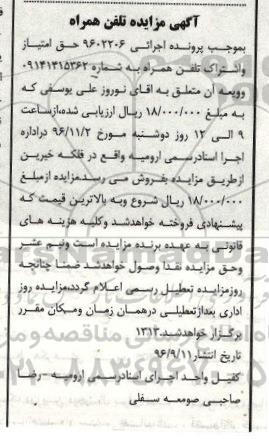 آگهی مزایده تلفن همراه
بموجب پرونده اجرائی ۹۶۰۲۲۰۶ حق امتیاز
واشتراک تلفن همراه به شماره ۰۹۱۴۱۴۱۵۳۶۲
وودیعه آن متعلق به اقای نوروز علی یوسفی که
به مبلغ ۱۸/۰۰۰/۰۰۰ ریال ارزیابی شده،ازساعت
۹ الی ۱۲ روز دوشنبه مورخ ۹۶/۱۱/۲ دراداره
اجرا اسنادرسمی ارومیه واقع در فلکه خیرین
ازطریق مزایده بفروش می رسد.مزایده ازمبلغ
۱۸/۰۰۰/۰۰۰ ریال شروع وبه بالاترین قیمت که
پیشنهادی فروخته خواهدشد وکلیه هزینه های
قانونی به عهده برنده مزایده است ونیم عشر
وحق مزایده نقدا وصول خواهدشد ضمنا چنانچه
روزمزایده تعطیل رسمی اعلام گردد،مزایده روز
اداری بعدازتعطیلی درهمان زمان ومکان مقرر
برگزار خواهدشد.۱۳۱۳
تاریخ انتشار:۹۶/۹/۱۱
کفیل واحد اجرای اسنادرسمی ارومیه -رضا
صاحبی صومعه سفلی